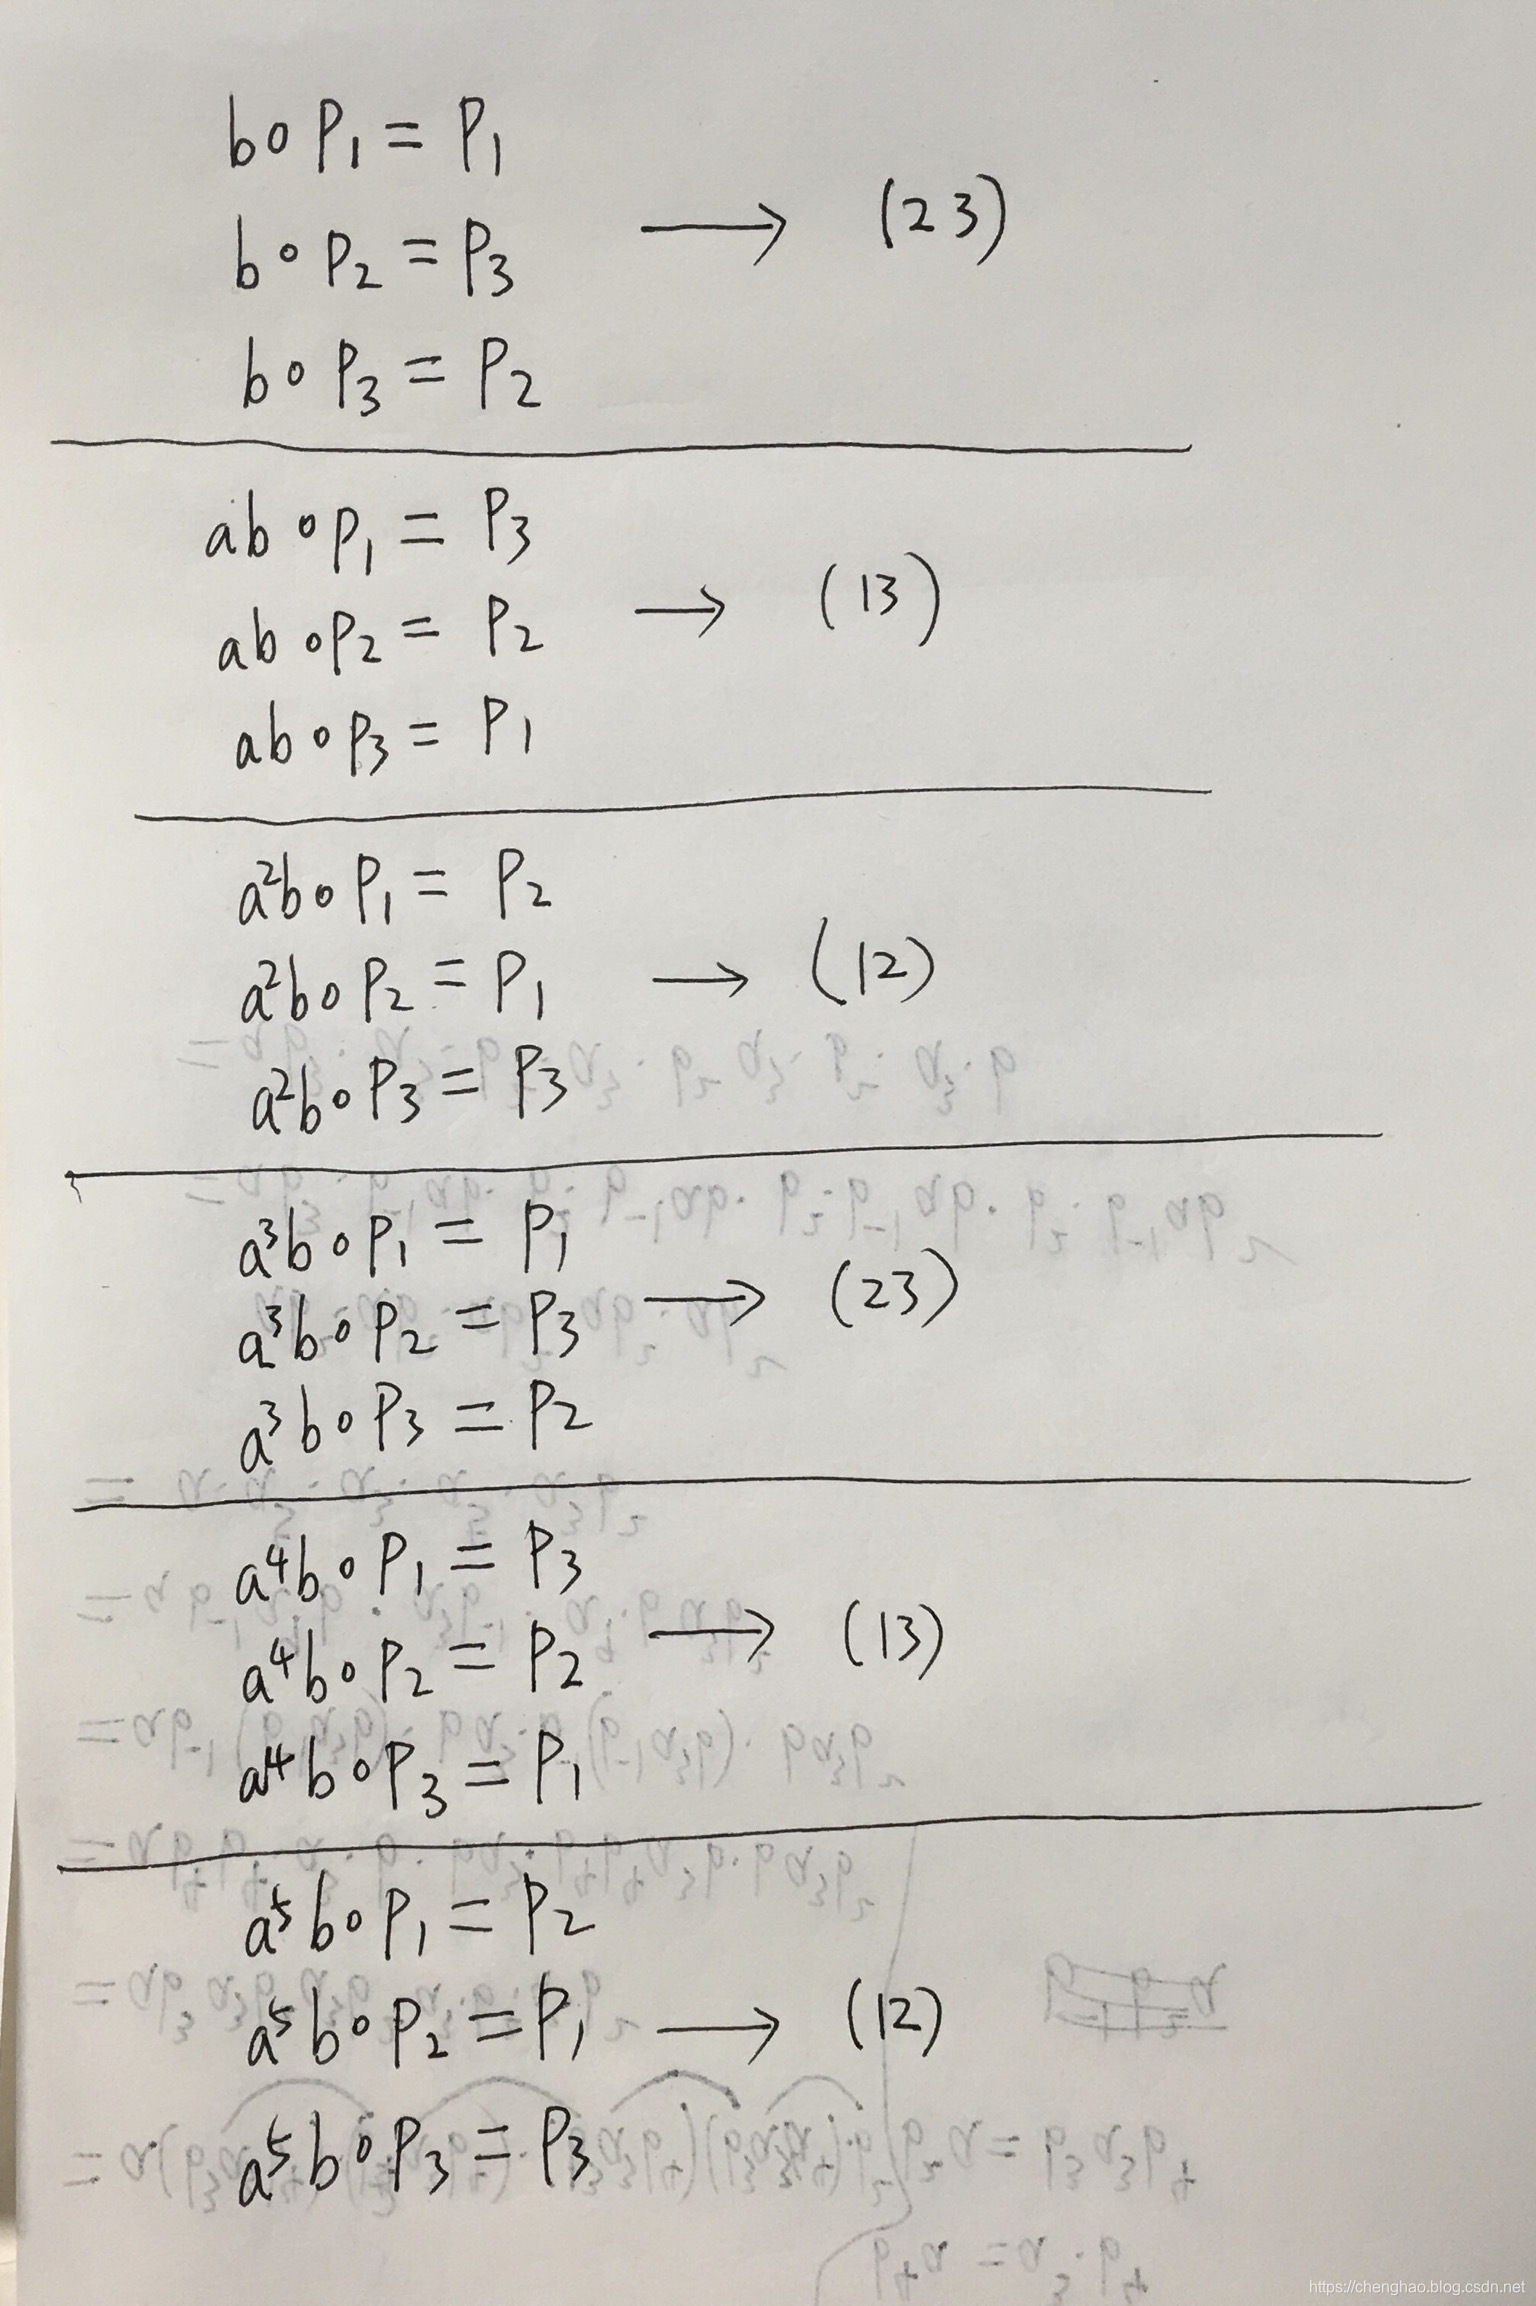 b∘P₁ = P₁
b∘P₂ = P₃ → (23)
b∘P₃ = P₂
ab∘P₁ = P₃
ab∘P₂ = P₂ → (13)
ab∘P₃ = P₁
a²b∘P₁ = P₂
a²b∘P₂ = P₁ → (12)
a²b∘P₃ = P₃
a³b∘P₁ = P₁
a³b∘P₂ = P₃ → (23)
a³b∘P₃ = P₂
a⁴b∘P₁ = P₃
a⁴b∘P₂ = P₂ → (13)
a⁴b∘P₃ = P₁
a⁵b∘P₁ = P₂
a⁵b∘P₂ = P₁ → (12)
a⁵b∘P₃ = P₃
https://chenghao.blog.csdn.net